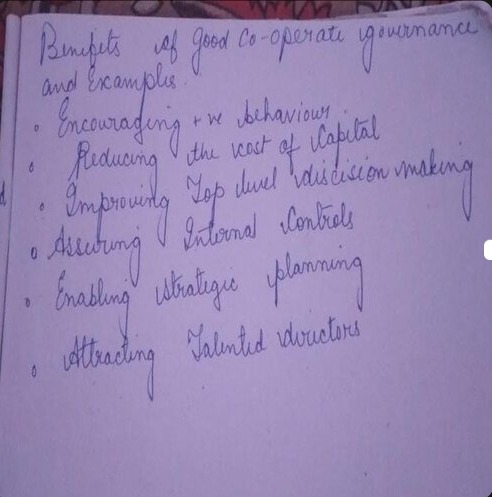 Benefits of good Co-operate governance
and Examples.
• Encouraging +ve behaviour.
• Reducing the cost of Capital
• Improving Top level discision making
• Assuring Internal Controls
• Enabling strategic planning
• Attracting Talented directors
d